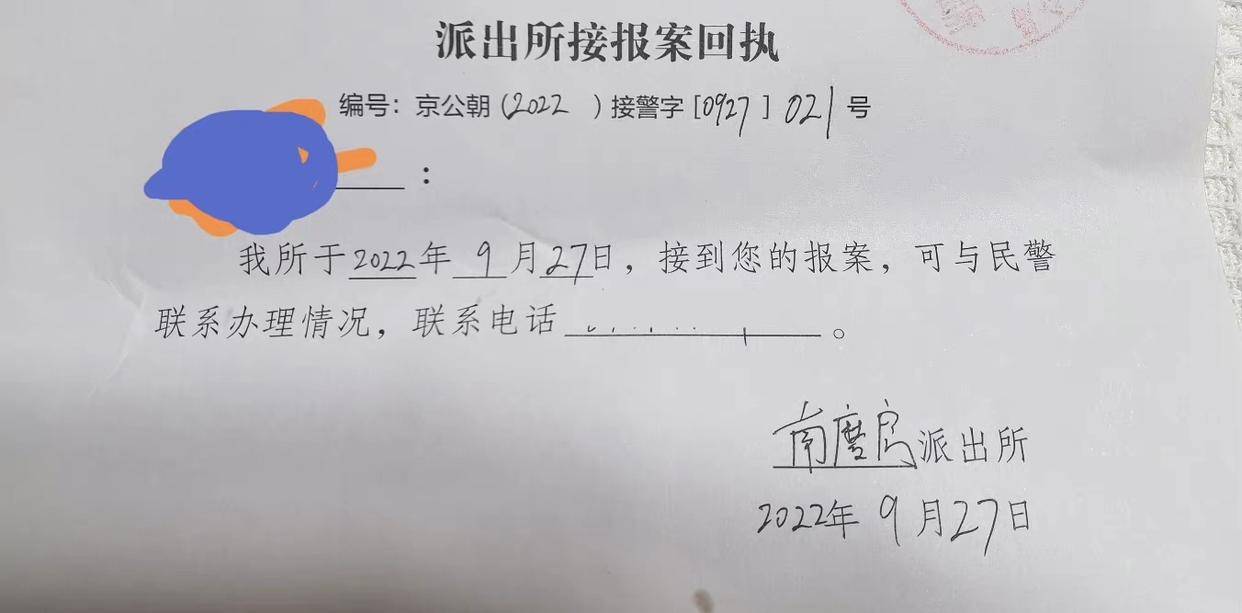 派出所接报案回执
编号：京公朝（2022 ）接警字［0927］021号
：
我所于2022年9月27日，接到您的报案，可与民警
联系办理情况，联系电话。
南磨房派出所
2022年9月27日